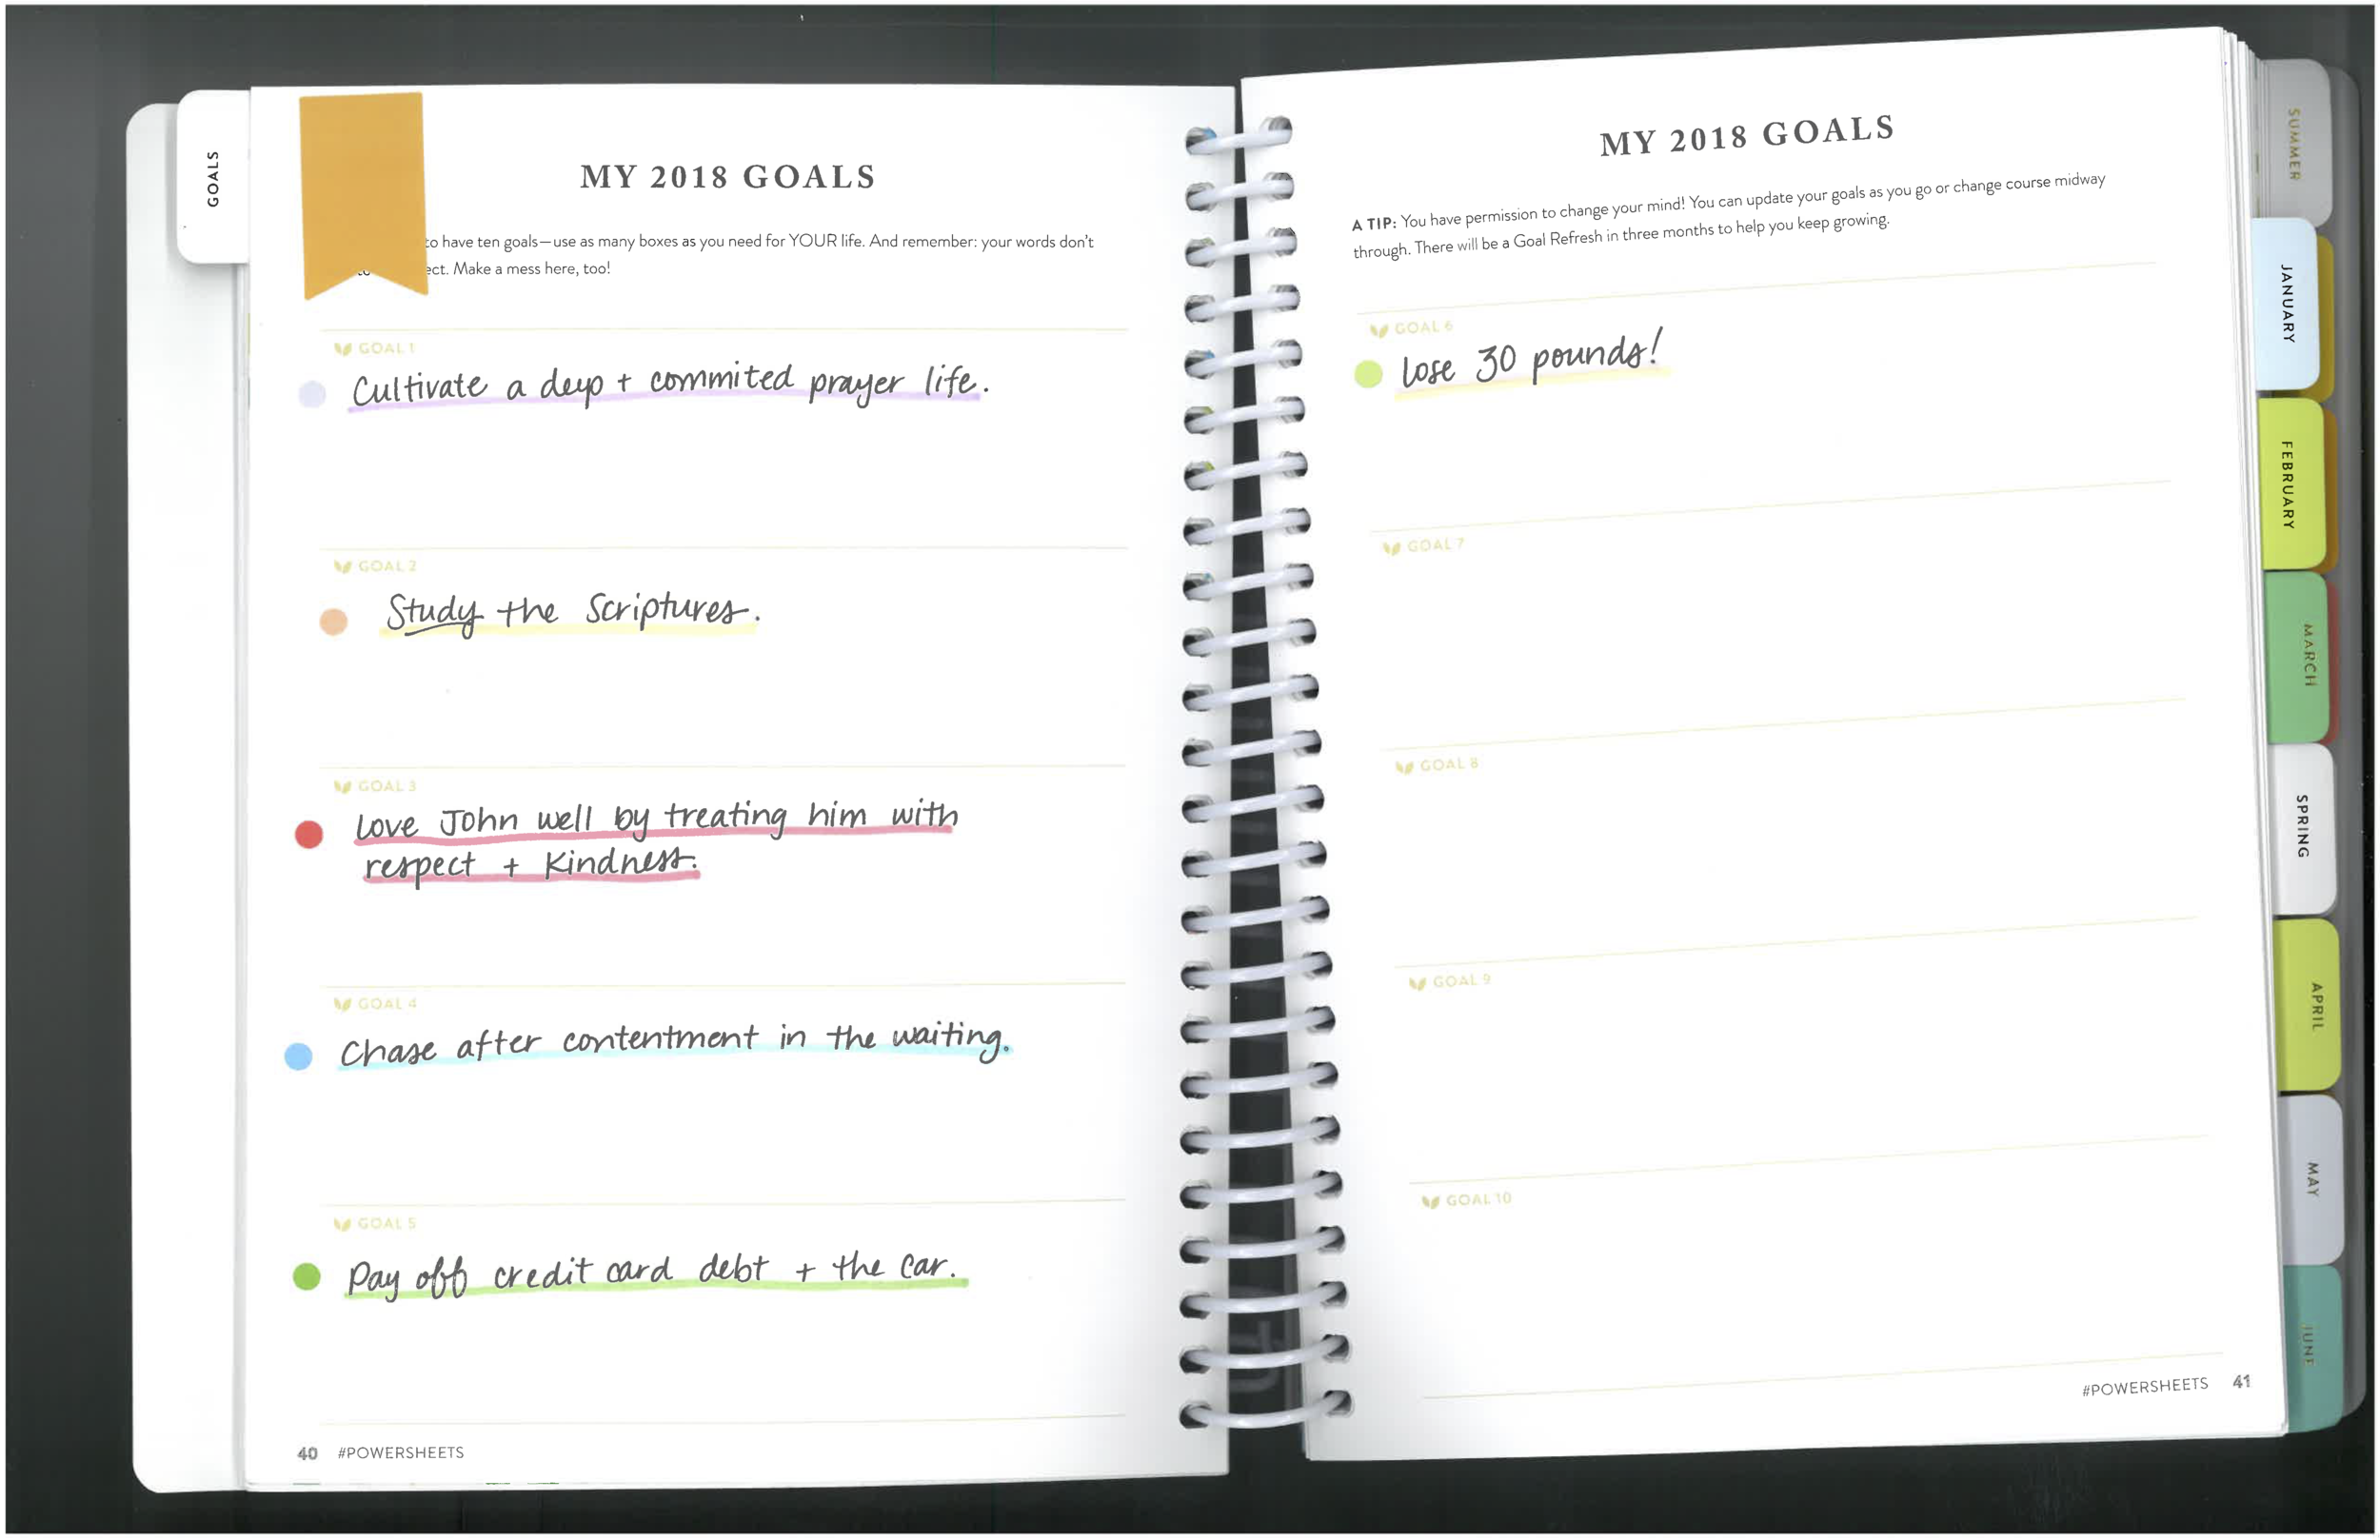 GOALS
MY 2018 GOALS
to have ten goals—use as many boxes as you need for YOUR life. And remember: your words don't
ect. Make a mess here, too!
GOAL 1
Cultivate a deep + commited prayer life.
GOAL 2
Study the Scriptures.
GOAL 3
Love John well by treating him with
respect + kindness.
GOAL 4
Chase after contentment in the waiting.
GOAL 5
Pay off credit card debt + the car.
40 #POWERSHEETS
MY 2018 GOALS
A TIP: You have permission to change your mind! You can update your goals as you go or change course midway
through. There will be a Goal Refresh in three months to help you keep growing.
GOAL 6
Lose 30 pounds!
GOAL 7
GOAL 8
GOAL 9
GOAL 10
#POWERSHEETS 41
SUMMER
JANUARY
FEBRUARY
MARCH
SPRING
APRIL
MAY
JUNE